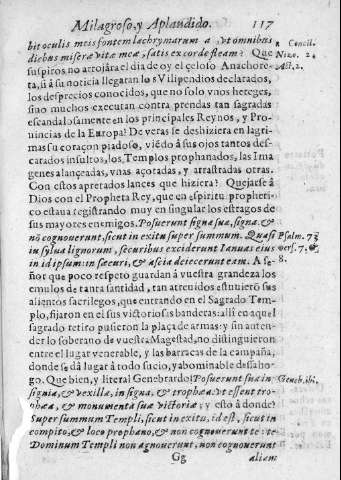 Milagroso, y Aplaudido. 117
bit oculis meis fontem lachrymarum a vt omnibus
diebus miseræ vitæ meæ, satis ex corde fleam? Que
suspiros no arrojára el dia de oy el çeloso Anachore-
ta, si á su noticia llegaran los Vilipendios declarados,
los desprecios conocidos, que no solo vnos hereges,
sino muchos executan contra prendas tan sagradas
escandalosamente en los principales Reynos, y Pro-
uincias de la Europa? De veras se deshiziera en lagri-
mas su coraçon piadoso, viēdo á sus ojos tantos des-
carados insultos, los Templos prophanados, las Ima
genes alançeadas, vnas açotadas, y arrastradas otras.
Con estos apretados lances que hiziera? Quejarse à
Dios con el Propheta Rey, que en espiritu propheri-
co estaua registrando muy en singular los estragos de
sus mayores enemigos. Posuerunt signa sua, signa, &
nō cognouerunt, sicut in exitu super summum. Quasi
in sylua lignorum, securibus exciderunt Ianuas eius
in id ipsum: in securi, & ascia deiecerunt eam. A se-
ñor que poco respeto guardan à vuestra grandeza los
emulos de tanta santidad, tan atreuidos estuuierō sus
alientos sacrilegos, que entrando en el Sagrado Tem-
plo, fijaron en el sus victoriosas banderas: allí en aquel
sagrado retiro pusieron la plaça de armas: y sin anten-
der lo soberano de vuestra Magestad, no distinguieron
entre el lugar venerable, y las barracas de la campaña,
donde se dà lugar à todo sucio, y abominable desaho-
go. Que bien, y literal Genebrardo! Posuerunt sua in
signia, & vexilla, in signa, & trophæa, vt essent tro-
phæa, & monumenta suæ victoriæ; y esto á donde?
Super summum Templi, sicut in exitu, id est, sicut in
compito, & loco prophano, & non cognouerunt te: te
Dominum Templi non agnouerunt, non cognouerunt
Gg alien;
a Concil.
Nizo. 2.
Act. 2.
Psalm. 73
vers. 7. &
8.
Geneb. ibi.